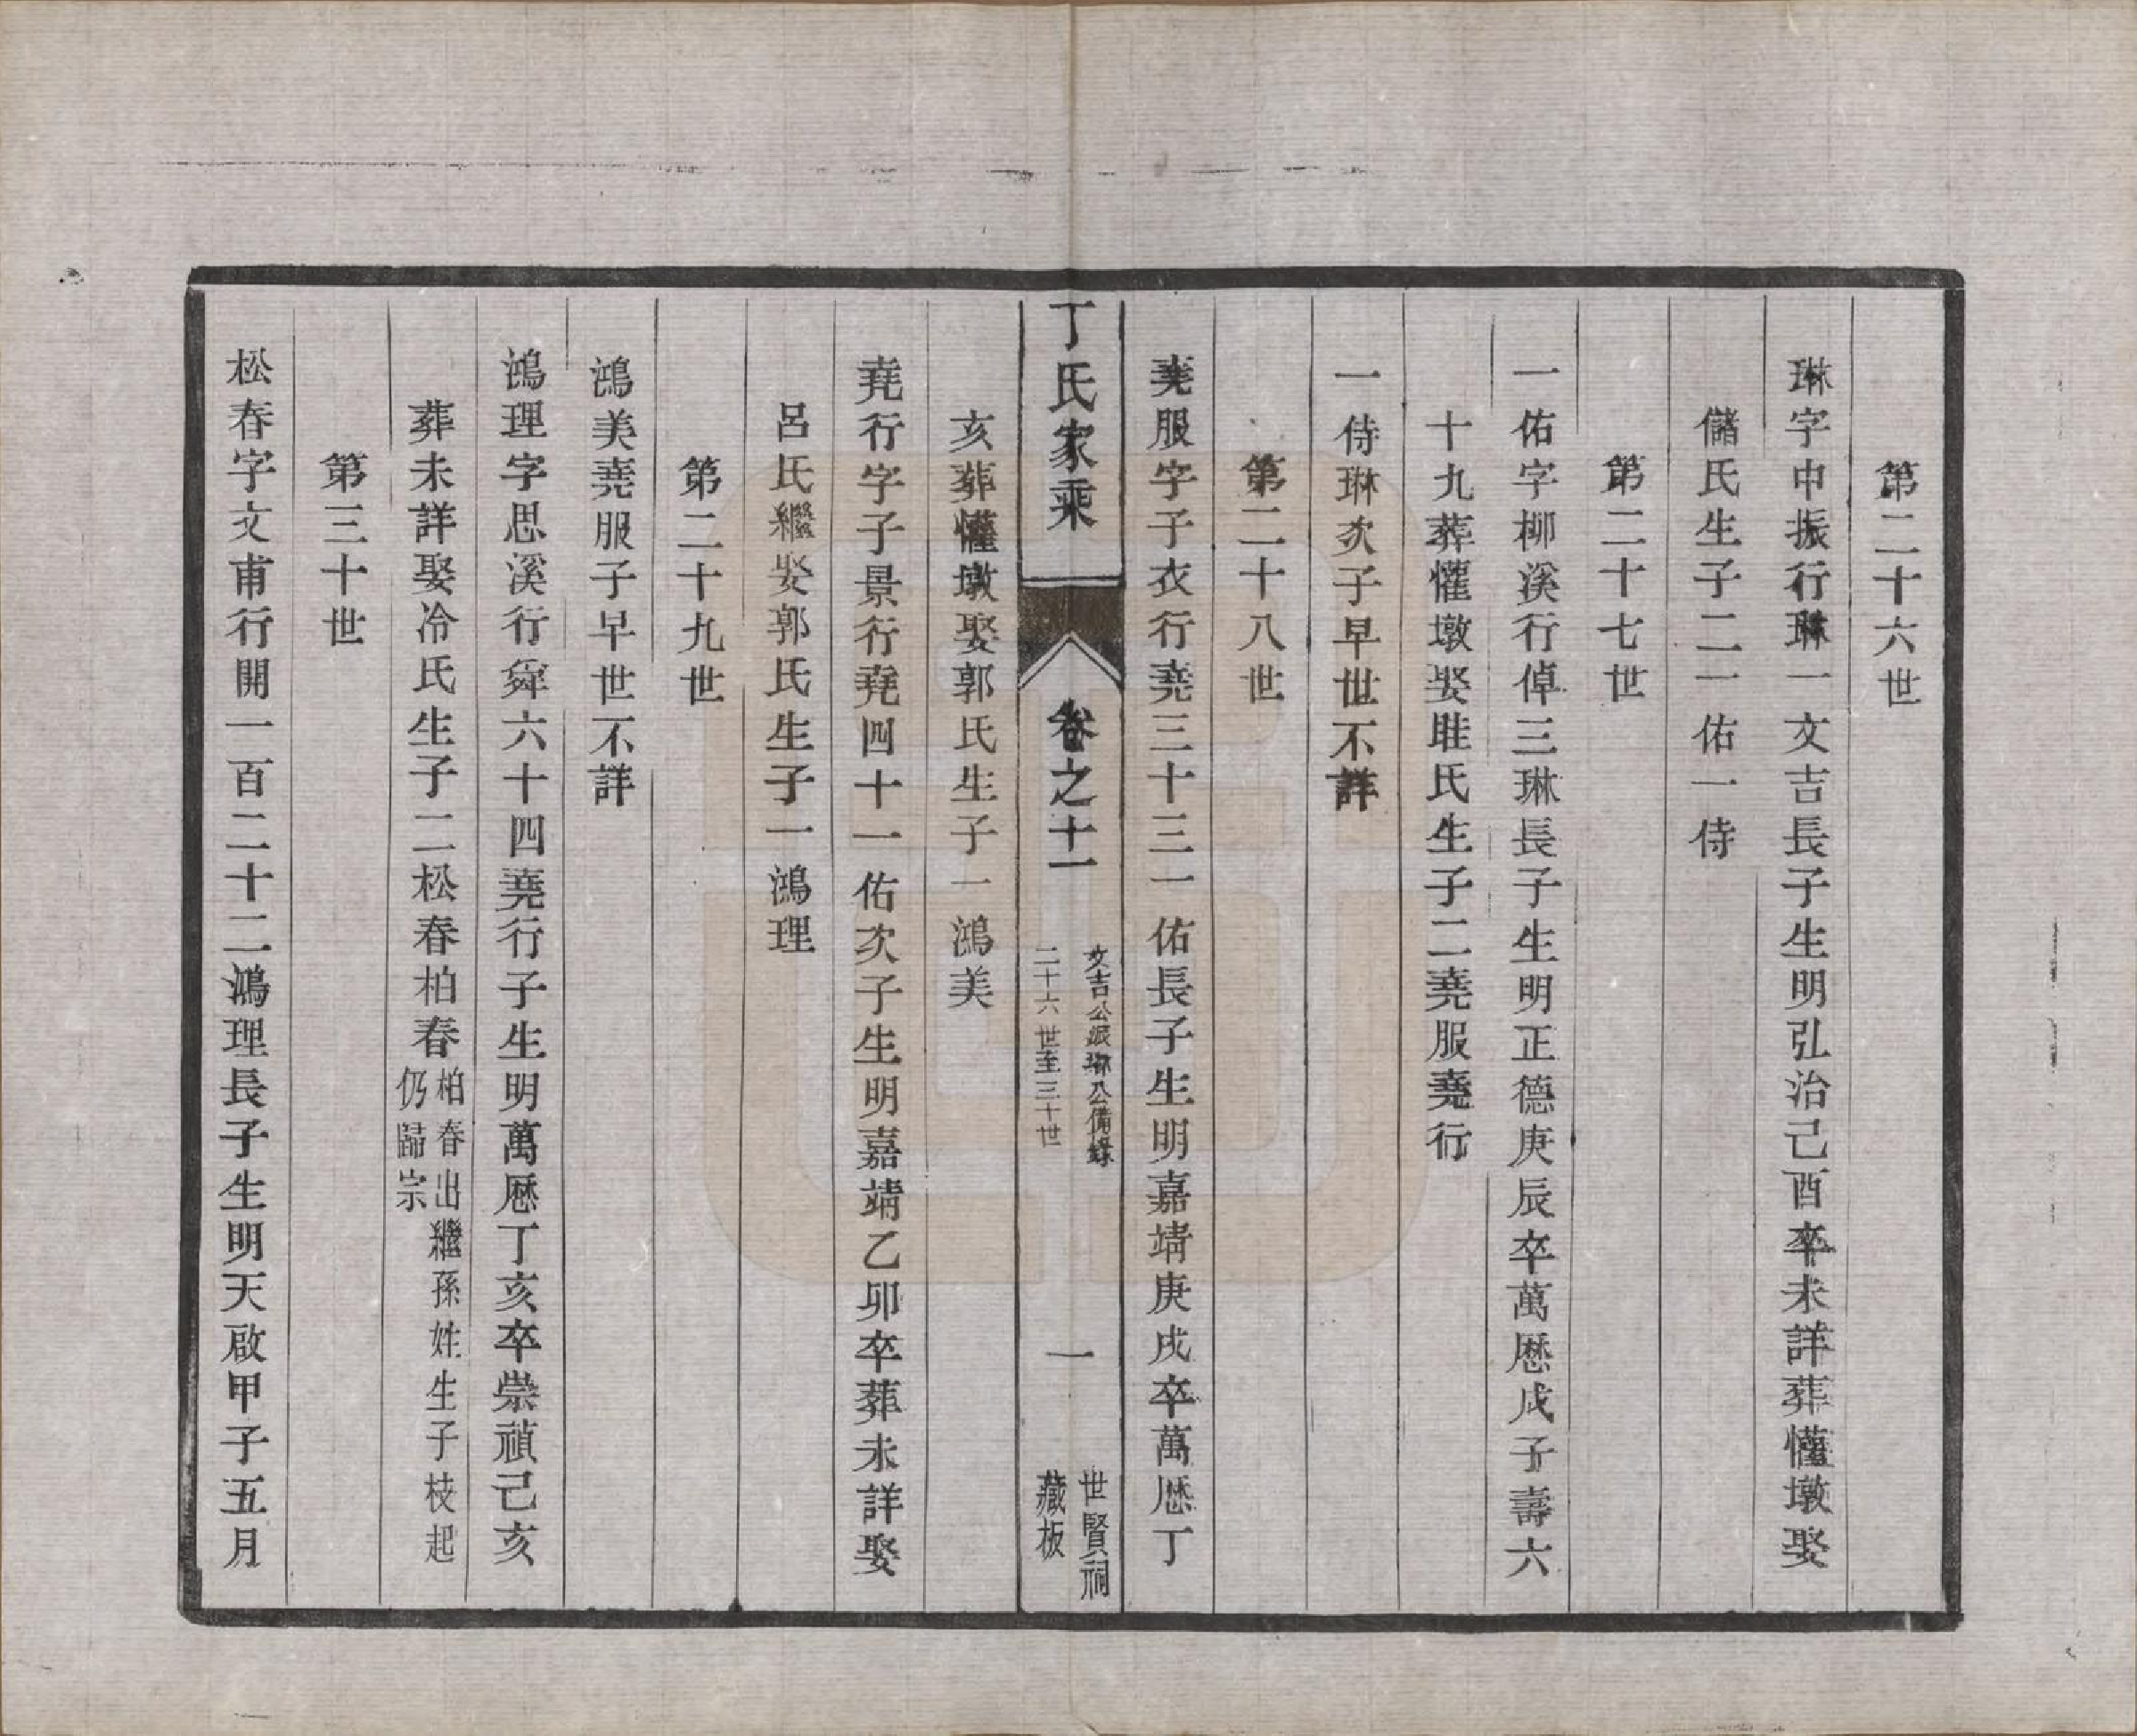 第二十六世
琳字中振行琳一文吉長子生明弘治己酉卒未詳葬懽墩娶
儲氏生子二一佑一侍
第二十七世
一佑字柳溪行倬三琳長子生明正德庚辰卒萬厯戊子壽六
十九葬懽墩娶眭氏生子二堯服堯行
一侍琳次子早世不詳
第二十八世
堯服字子衣行堯三十三一佑長子生明嘉靖庚戌卒萬厯丁
丁氏家乘
卷之十一
文吉公派琳公備錄
二十六世至三十世
一
世賢祠
藏板
亥葬懽墩娶郭氏生子一鴻美
堯行字子景行堯四十一佑次子生明嘉靖乙卯卒葬未詳娶
呂氏繼娶郭氏生子一鴻理
第二十九世
鴻美堯服子早世不詳
鴻理字思溪行舜六十四堯行子生明萬厯丁亥卒崇禎己亥
葬未詳娶冷氏生子二松春柏春柏春出繼孫姓生子枝起
仍歸宗
第三十世
松春字文甫行開一百二十二鴻理長子生明天啟甲子五月